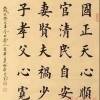 國正天心順
官清民自安
妻賢夫禍少
子孝父心寬